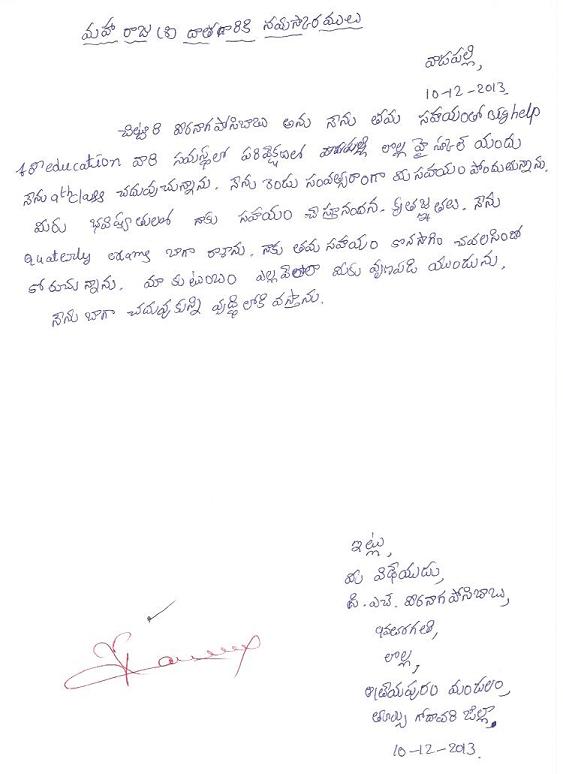 మహా రాజ (శ్రీ) దాతగారికి నమస్కారములు
వాడపల్లి,
10-12-2013
చిట్టూరి వీరనాగపోసిబాబు అను నేను తమ సహాయంతో help
for education వారి సమస్థలో లొల్ల హై స్కూల్ యందు
నేను 9th class చదువుచున్నాను. నేను రెండు సంవత్సరాంగా మీ సహాయం పోందుతున్నాను.
మీరు భవిష్యత్తులో నాకు సహాయం చేస్తూనందన కృతజ్ఞతలు. నేను
quaterly exams బాగా రాశాను. నాకు తమ సహాయం కొనసాగిం చవలసిందో
కోరుచున్నాను. మా కుటుంబం ఎల్లవేలలా మీకు వృణపడి యుండును,
నేను బాగా చదువుకున్ని వృద్ధిలోకి వస్తాను.
ఇట్లు,
మీ విధేయుడు,
సి.హెచ్. వీరనాగపోసిబాబు,
లొల్ల,
ఆత్రేయపురం మండలం,
తూర్పు గోదావరి జిల్లా,
10-12-2013.